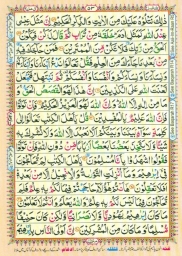 ذٰلِكَ نَتْلُوْهُ عَلَيْكَ مِنَ الْاٰيٰتِ وَالذِّكْرِ الْحَكِيْمِ اِنَّ مَثَلَ عِيْسٰى
عِنْدَ اللّٰهِ كَمَثَلِ اٰدَمَ خَلَقَهٗ مِنْ تُرَابٍ ثُمَّ قَالَ لَهٗ كُنْ فَيَكُوْنُ
اَلْحَقُّ مِنْ رَّبِّكَ فَلَا تَكُنْ مِّنَ الْمُمْتَرِيْنَ فَمَنْ حَآجَّكَ فِيْهِ
مِنْۢ بَعْدِ مَا جَآءَكَ مِنَ الْعِلْمِ فَقُلْ تَعَالَوْا نَدْعُ اَبْنَآءَنَا وَاَبْنَآءَكُمْ
وَنِسَآءَنَا وَنِسَآءَكُمْ وَاَنْفُسَنَا وَاَنْفُسَكُمْ ثُمَّ نَبْتَهِلْ فَنَجْعَلْ
لَّعْنَتَ اللّٰهِ عَلَى الْكٰذِبِيْنَ اِنَّ هٰذَا لَهُوَ الْقَصَصُ الْحَقُّ
وَمَا مِنْ اِلٰهٍ اِلَّا اللّٰهُ وَاِنَّ اللّٰهَ لَهُوَ الْعَزِيْزُ الْحَكِيْمُ فَاِنْ تَوَلَّوْا
فَاِنَّ اللّٰهَ عَلِيْمٌۢ بِالْمُفْسِدِيْنَ قُلْ يٰٓاَهْلَ الْكِتٰبِ تَعَالَوْا اِلٰى
كَلِمَةٍ سَوَآءٍۢ بَيْنَنَا وَبَيْنَكُمْ اَلَّا نَعْبُدَ اِلَّا اللّٰهَ وَلَا نُشْرِكَ بِهٖ
شَيْئًا وَّلَا يَتَّخِذَ بَعْضُنَا بَعْضًا اَرْبَابًا مِّنْ دُوْنِ اللّٰهِ فَاِنْ تَوَلَّوْا
فَقُوْلُوا اشْهَدُوْا بِاَنَّا مُسْلِمُوْنَ يٰٓاَهْلَ الْكِتٰبِ لِمَ تُحَآجُّوْنَ
فِيْٓ اِبْرٰهِيْمَ وَمَآ اُنْزِلَتِ التَّوْرٰىةُ وَالْاِنْجِيْلُ اِلَّا مِنْۢ بَعْدِهٖ اَفَلَا
تَعْقِلُوْنَ هٰٓاَنْتُمْ هٰٓؤُلَآءِ حَاجَجْتُمْ فِيْمَا لَكُمْ بِهٖ عِلْمٌ فَلِمَ
تُحَآجُّوْنَ فِيْمَا لَيْسَ لَكُمْ بِهٖ عِلْمٌ وَاللّٰهُ يَعْلَمُ وَاَنْتُمْ لَا تَعْلَمُوْنَ
مَا كَانَ اِبْرٰهِيْمُ يَهُوْدِيًّا وَّلَا نَصْرَانِيًّا وَّلٰكِنْ كَانَ حَنِيْفًا
مُّسْلِمًا وَمَا كَانَ مِنَ الْمُشْرِكِيْنَ اِنَّ اَوْلَى النَّاسِ بِاِبْرٰهِيْمَ